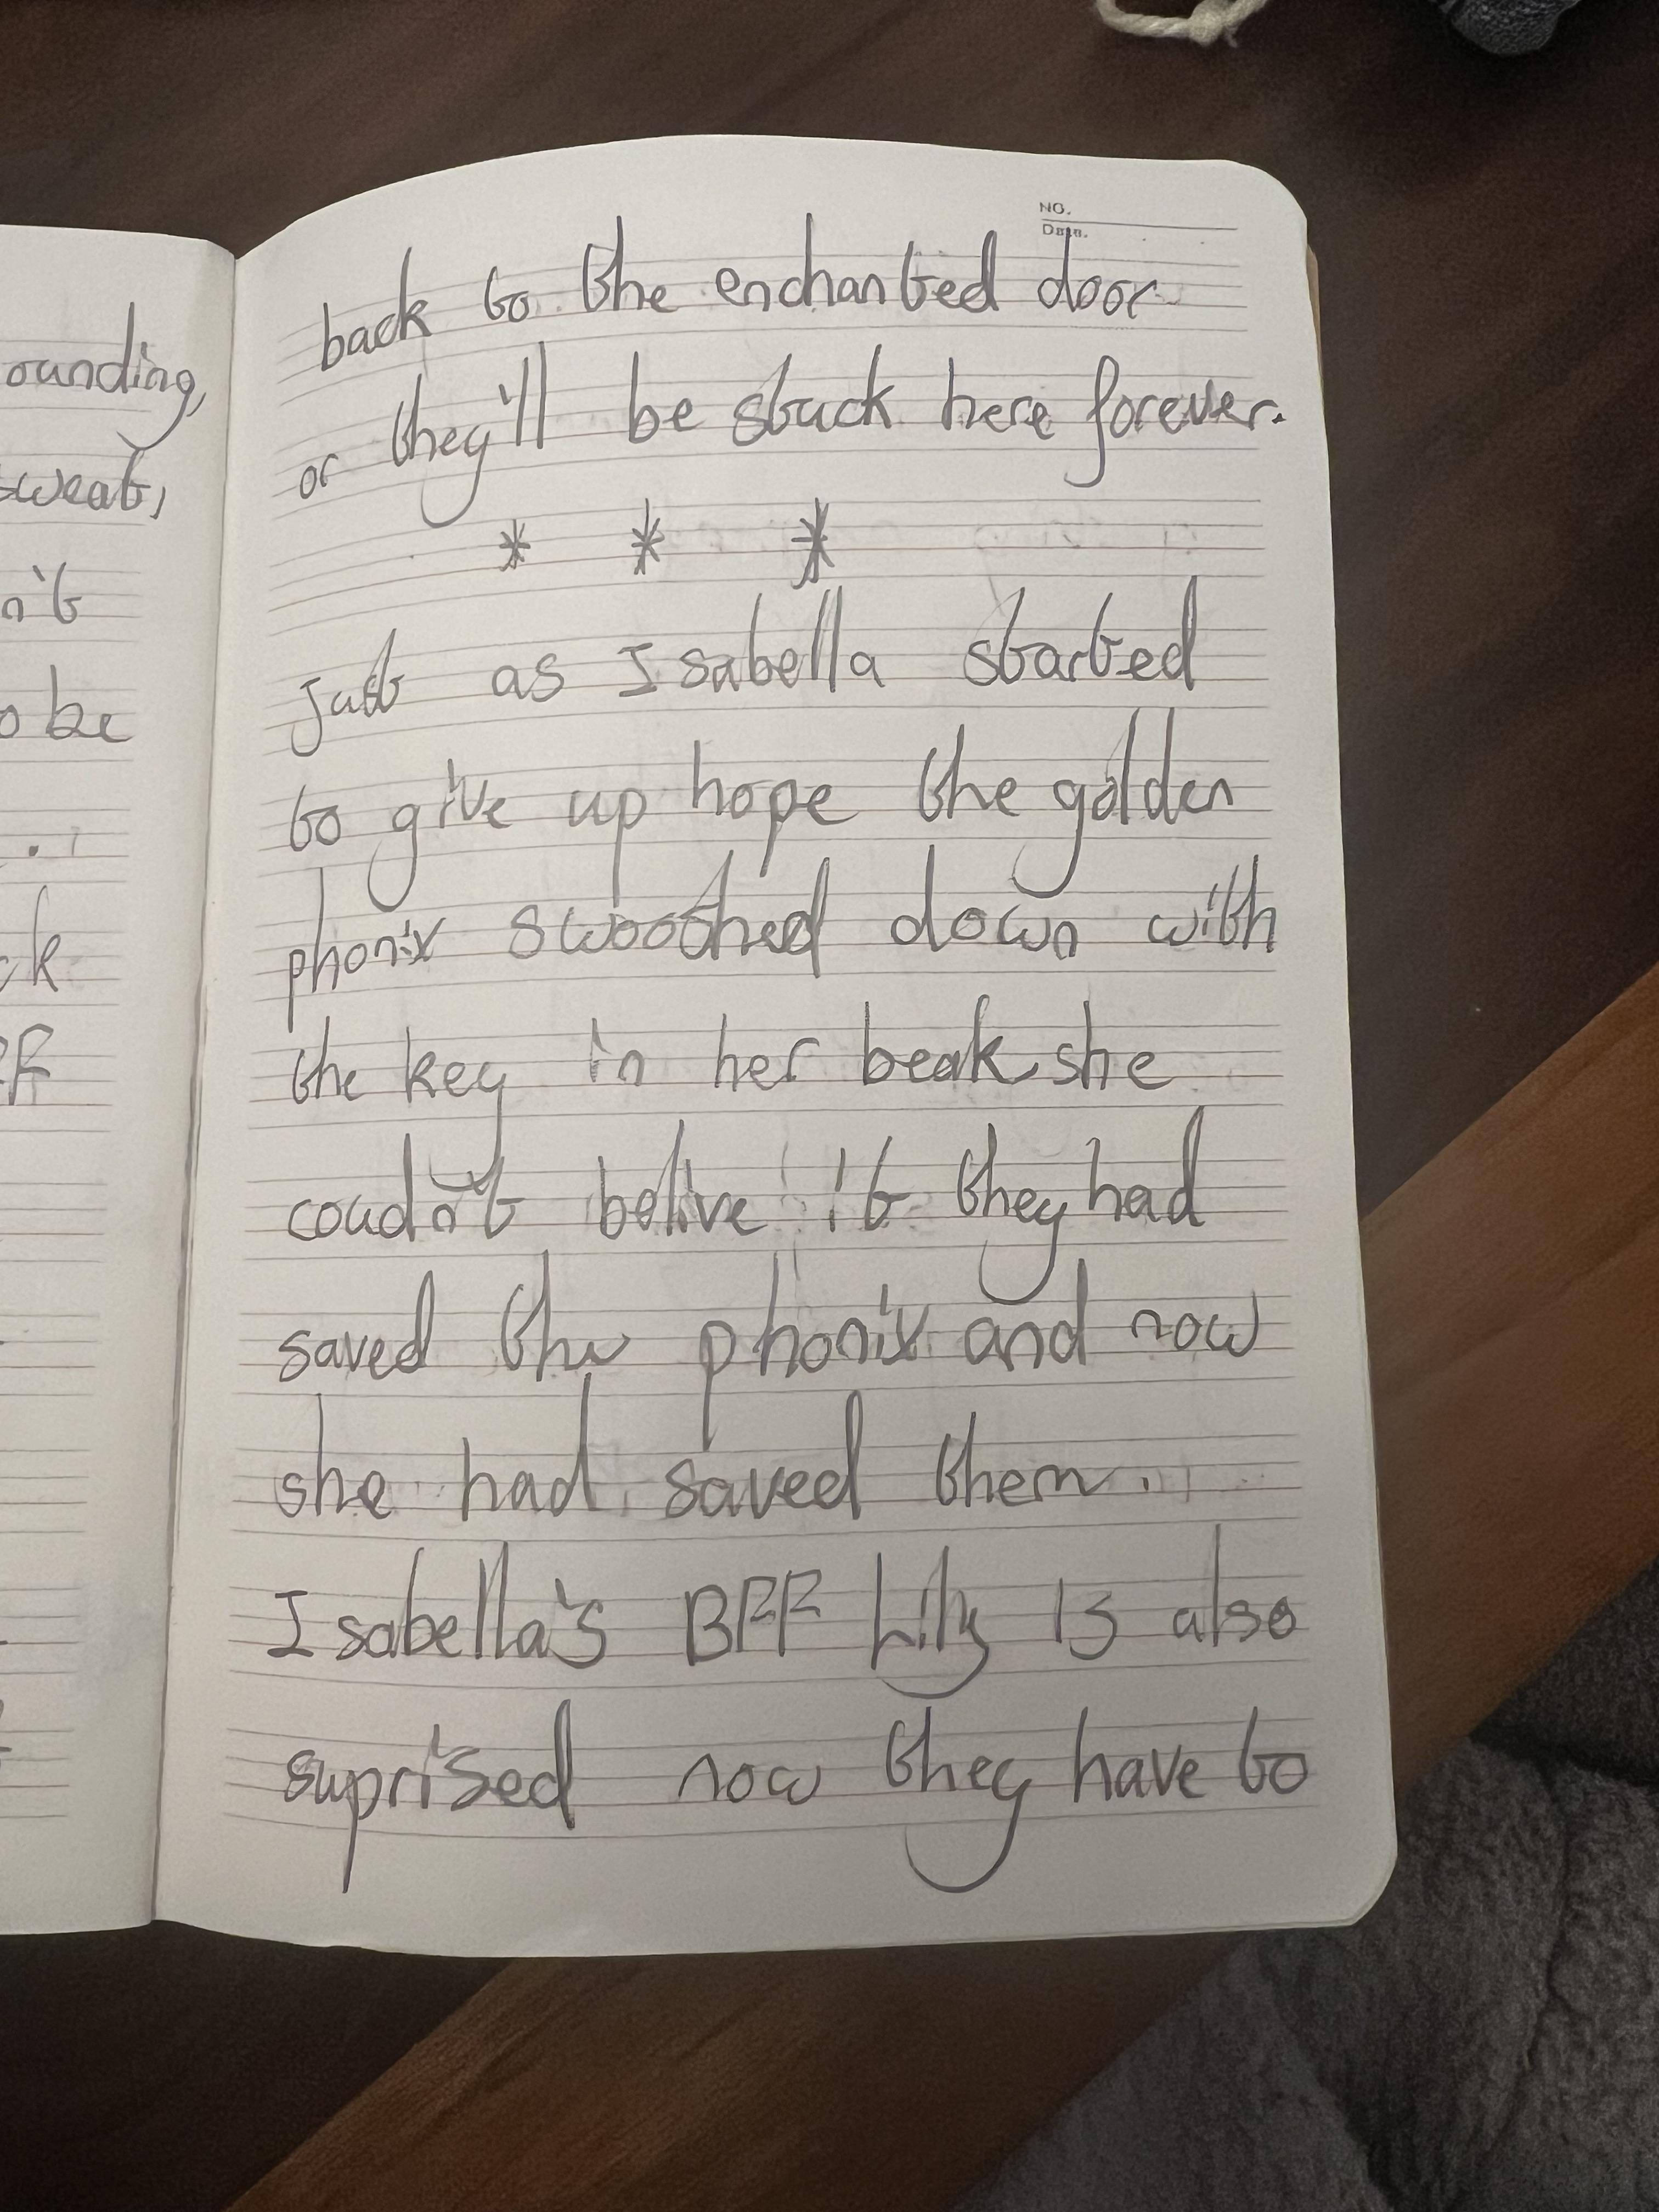 ounding,
sweat,
n't
o be
ck
FF
NO.
Date.
back to the enchanted door
or they'll be stuck here forever.
* * *
Just as Isabella started
to give up hope the golden
phonix swoothed down with
the key in her beak she
coudn't belive it they had
saved the phonix and now
she had saved them.
Isabella's BFF Lily is also
suprised now they have to